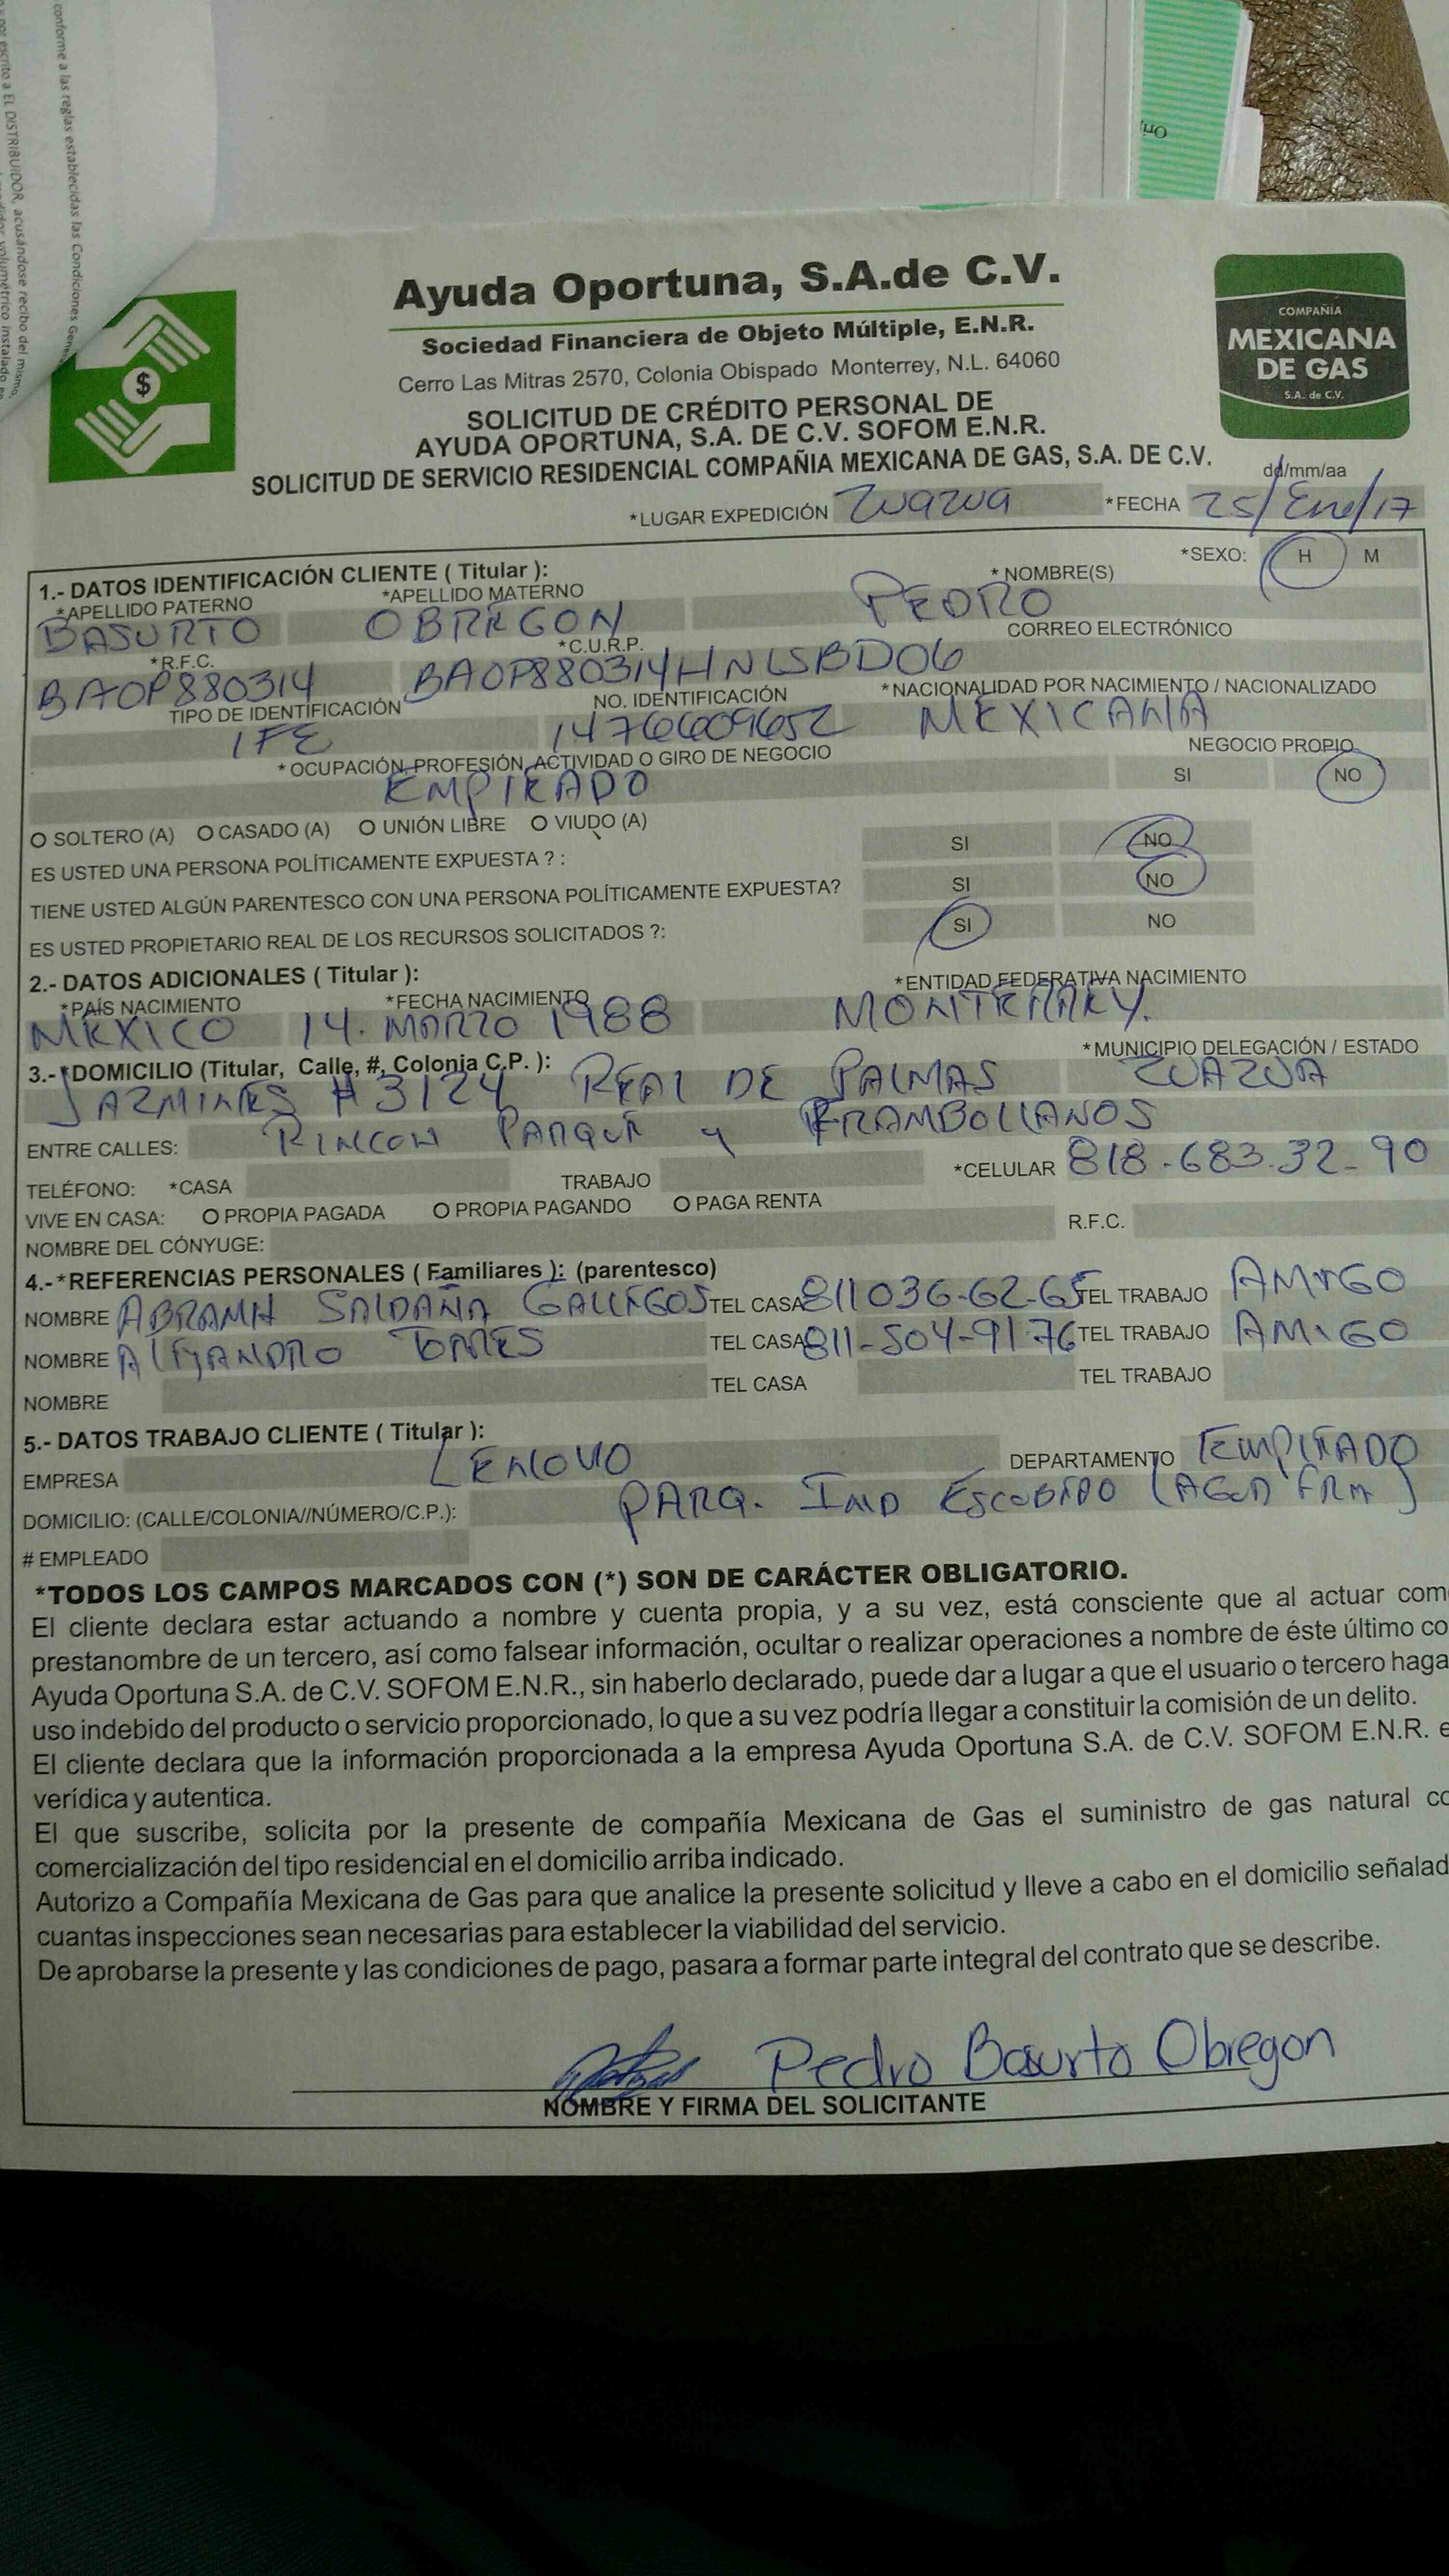 conforme a las reglas establecidas las Condiciones Gene
por escrito a EL DISTRIBUIDOR, acusándose recibo del mismo,
$
Ayuda Oportuna, S.A.de C.V.
Sociedad Financiera de Objeto Múltiple, E.N.R.
Cerro Las Mitras 2570, Colonia Obispado Monterrey, N.L. 64060
SOLICITUD DE CRÉDITO PERSONAL DE
AYUDA OPORTUNA, S.A. DE C.V. SOFOM E.N.R.
SOLICITUD DE SERVICIO RESIDENCIAL COMPAÑIA MEXICANA DE GAS, S.A. DE C.V.
COMPAÑÍA
MEXICANA
DE GAS
S.A. de C.V.
dd/mm/aa
*LUGAR EXPEDICIÓN Zuazua *FECHA 25/Ene/17
1.- DATOS IDENTIFICACIÓN CLIENTE ( Titular ): *SEXO: H M
*APELLIDO PATERNO *APELLIDO MATERNO * NOMBRE(S)
BASURTO OBREGON PEDRO
*R.F.C. *C.U.R.P. CORREO ELECTRÓNICO
BAOP880314 BAOP880314HNLSBD06
TIPO DE IDENTIFICACIÓN NO. IDENTIFICACIÓN *NACIONALIDAD POR NACIMIENTO / NACIONALIZADO
IFE 1476609652 MEXICANA
* OCUPACIÓN, PROFESIÓN, ACTIVIDAD O GIRO DE NEGOCIO NEGOCIO PROPIO
EMPLEADO SI NO
O SOLTERO (A) O CASADO (A) O UNIÓN LIBRE O VIUDO (A)
ES USTED UNA PERSONA POLÍTICAMENTE EXPUESTA ? : SI NO
TIENE USTED ALGÚN PARENTESCO CON UNA PERSONA POLÍTICAMENTE EXPUESTA? SI NO
ES USTED PROPIETARIO REAL DE LOS RECURSOS SOLICITADOS ?: SI NO
2.- DATOS ADICIONALES ( Titular ):
*PAÍS NACIMIENTO *FECHA NACIMIENTO *ENTIDAD FEDERATIVA NACIMIENTO
MEXICO 14. MARZO 1988 MONTERREY.
3.-*DOMICILIO (Titular, Calle, #, Colonia C.P. ): *MUNICIPIO DELEGACIÓN / ESTADO
JAZMINES #3124 REAL DE PALMAS ZUAZUA
ENTRE CALLES: RINCON PARQUE y FRAMBOLLANOS
TELÉFONO: *CASA TRABAJO *CELULAR 818-683-32-90
VIVE EN CASA: O PROPIA PAGADA O PROPIA PAGANDO O PAGA RENTA
NOMBRE DEL CÓNYUGE: R.F.C.
4.-*REFERENCIAS PERSONALES ( Familiares ): (parentesco)
NOMBRE ABRAMH SALDAÑA GALLEGOS TEL CASA 811036-62-65 TEL TRABAJO AMIGO
NOMBRE ALEJANDRO TORRES TEL CASA 811-504-9176 TEL TRABAJO AMIGO
NOMBRE TEL CASA TEL TRABAJO
5.- DATOS TRABAJO CLIENTE ( Titular ):
EMPRESA LENOVO DEPARTAMENTO EMPLEADO
DOMICILIO: (CALLE/COLONIA//NÚMERO/C.P.): PARQ. IND ESCOBEDO
# EMPLEADO
*TODOS LOS CAMPOS MARCADOS CON (*) SON DE CARÁCTER OBLIGATORIO.
El cliente declara estar actuando a nombre y cuenta propia, y a su vez, está consciente que al actuar com
prestanombre de un tercero, así como falsear información, ocultar o realizar operaciones a nombre de éste último co
Ayuda Oportuna S.A. de C.V. SOFOM E.N.R., sin haberlo declarado, puede dar a lugar a que el usuario o tercero haga
uso indebido del producto o servicio proporcionado, lo que a su vez podría llegar a constituir la comisión de un delito.
El cliente declara que la información proporcionada a la empresa Ayuda Oportuna S.A. de C.V. SOFOM E.N.R. e
verídica y autentica.
El que suscribe, solicita por la presente de compañía Mexicana de Gas el suministro de gas natural co
comercialización del tipo residencial en el domicilio arriba indicado.
Autorizo a Compañía Mexicana de Gas para que analice la presente solicitud y lleve a cabo en el domicilio señalad
cuantas inspecciones sean necesarias para establecer la viabilidad del servicio.
De aprobarse la presente y las condiciones de pago, pasara a formar parte integral del contrato que se describe.
Pedro Basurto Obregon
NOMBRE Y FIRMA DEL SOLICITANTE